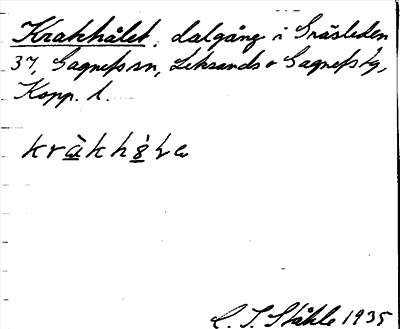 Krakhålet, dalgång i Gråsleden
37, Gagnefs sn, Leksands o Gagnefs tg,
Kopp. l.
kràkhòla
C. I. Ståhle 1935